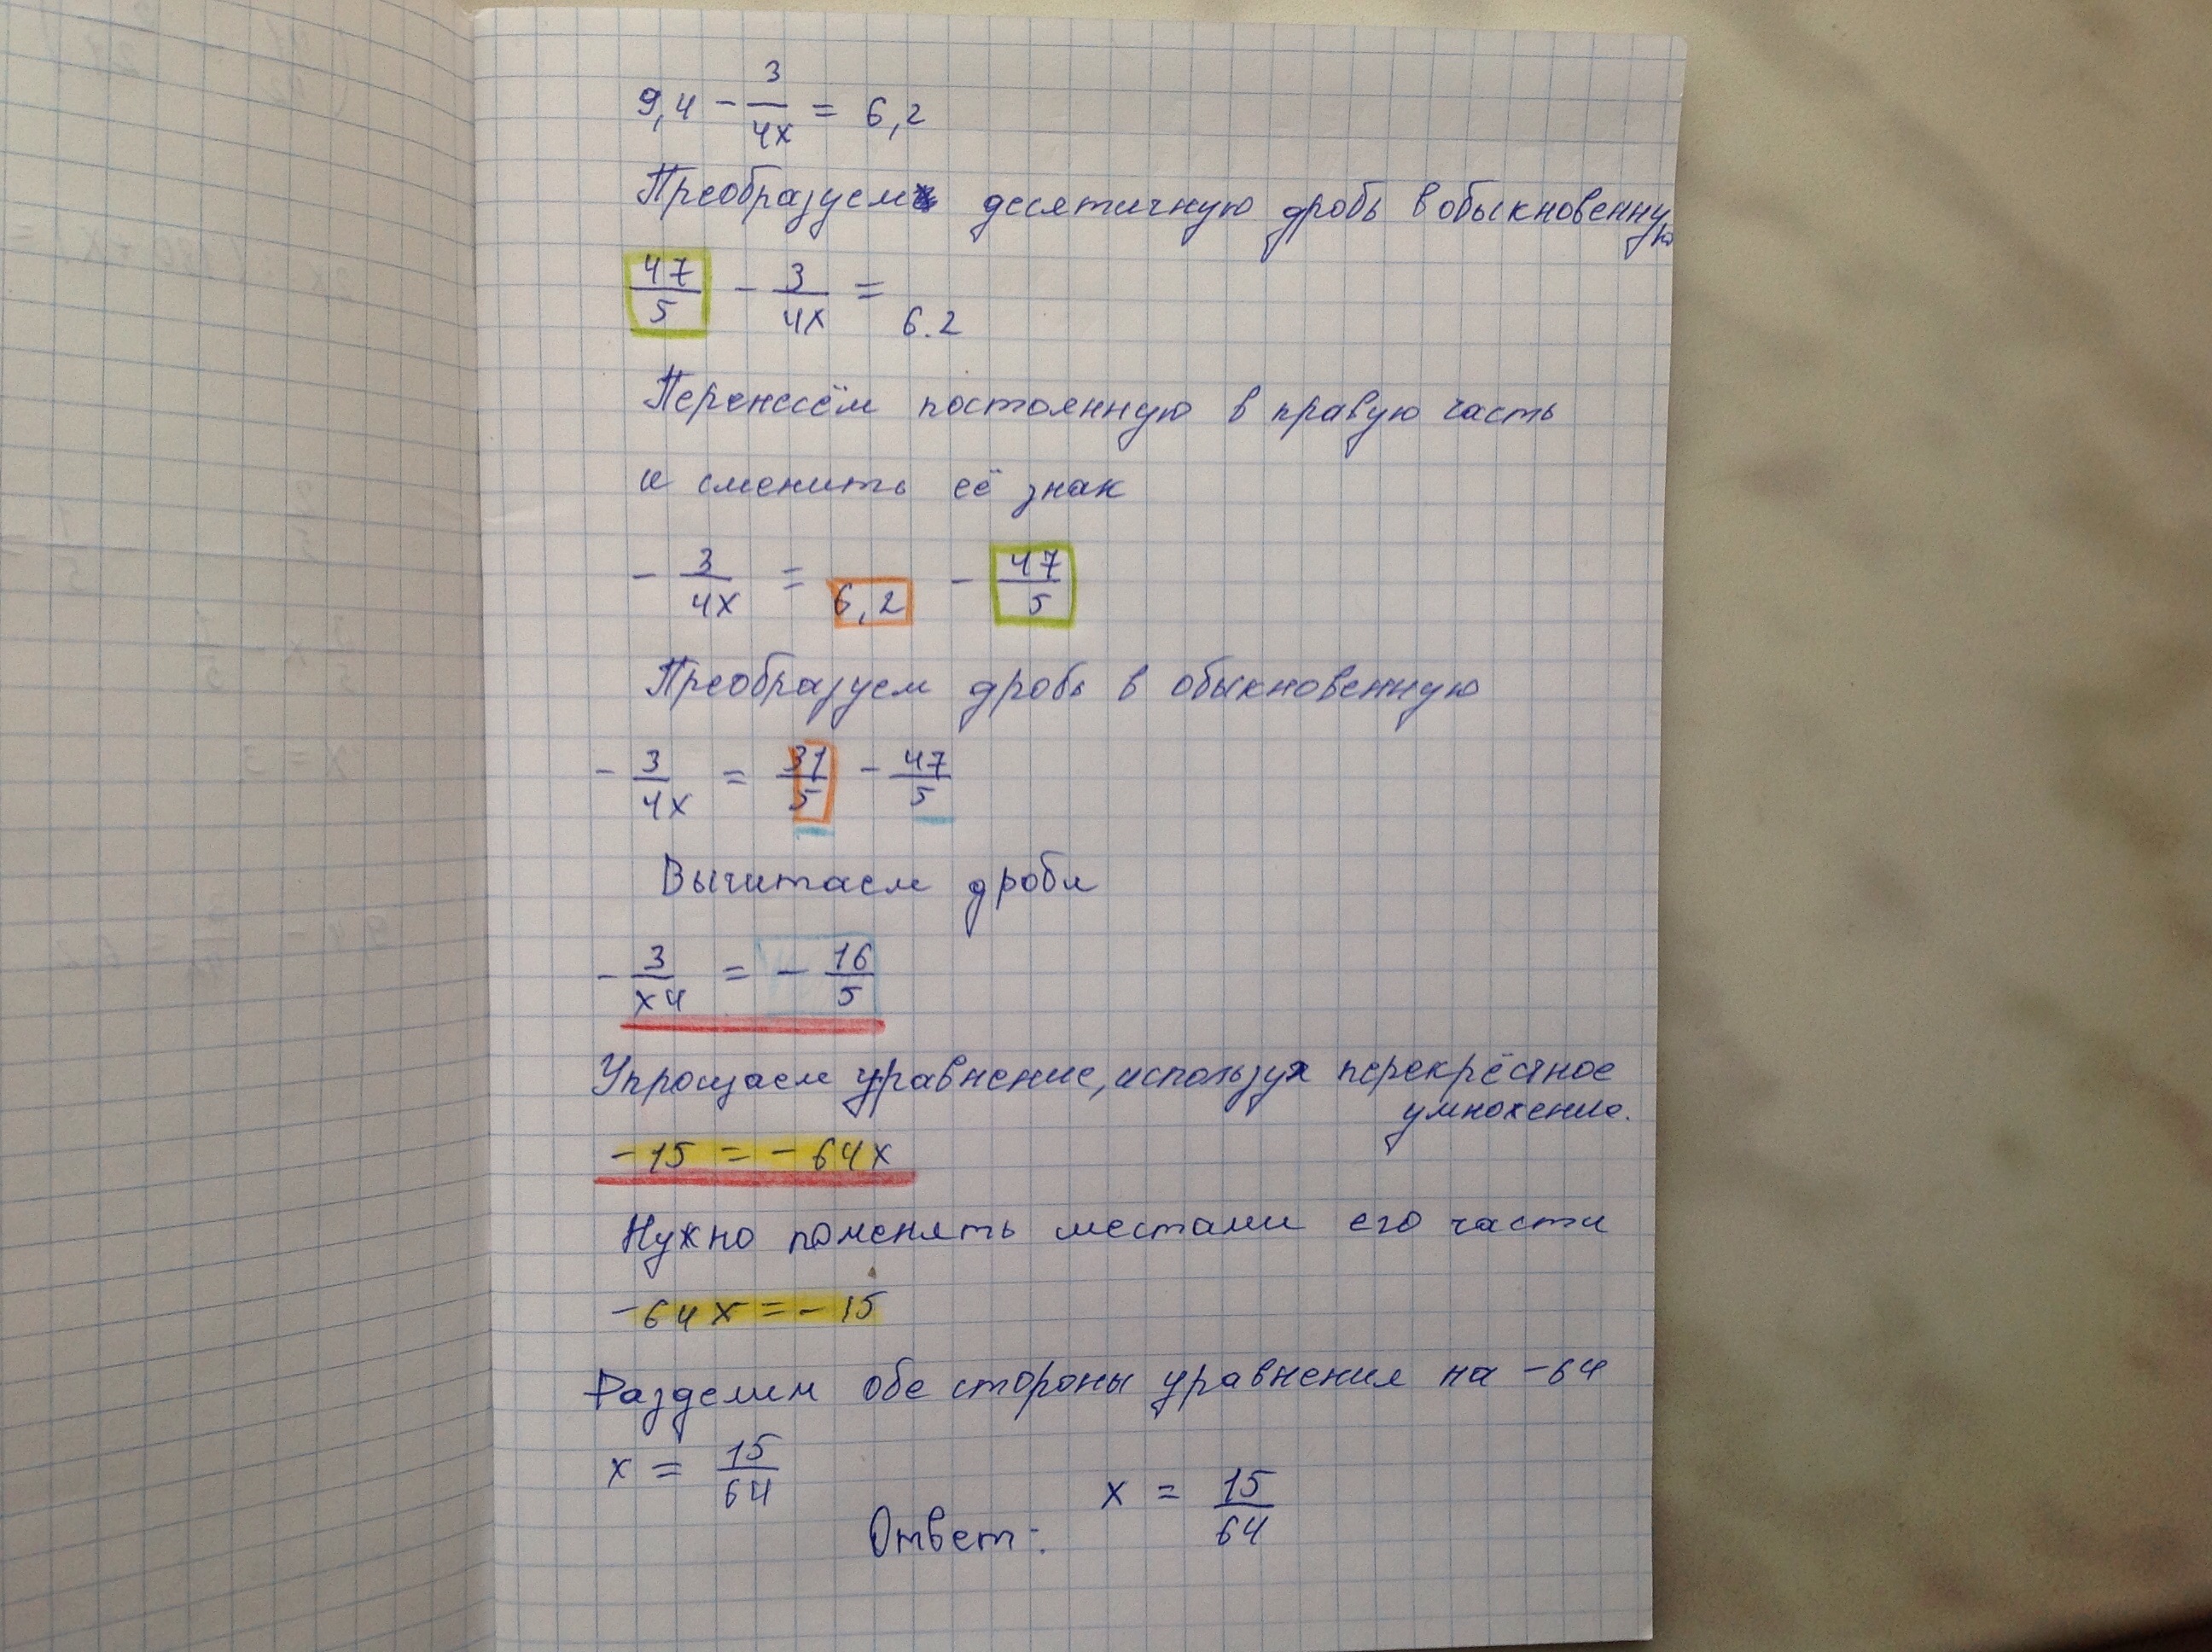 9,4 - 3/4x = 6,2
Преобразуем десятичную дробь в обыкновенную
47/5 - 3/4x = 6.2
Перенесём постоянную в правую часть
и сменить её знак
- 3/4x = 6,2 - 47/5
Преобразуем дробь в обыкновенную
- 3/4x = 31/5 - 47/5
Вычитаем дроби
- 3/x4 = - 16/5
Упрощаем уравнение, используя перекрёстное
умножение.
-15 = -64x
Нужно поменять местами его части
-64x = -15
Разделим обе стороны уравнения на -64
x = 15/64
Ответ: x = 15/64